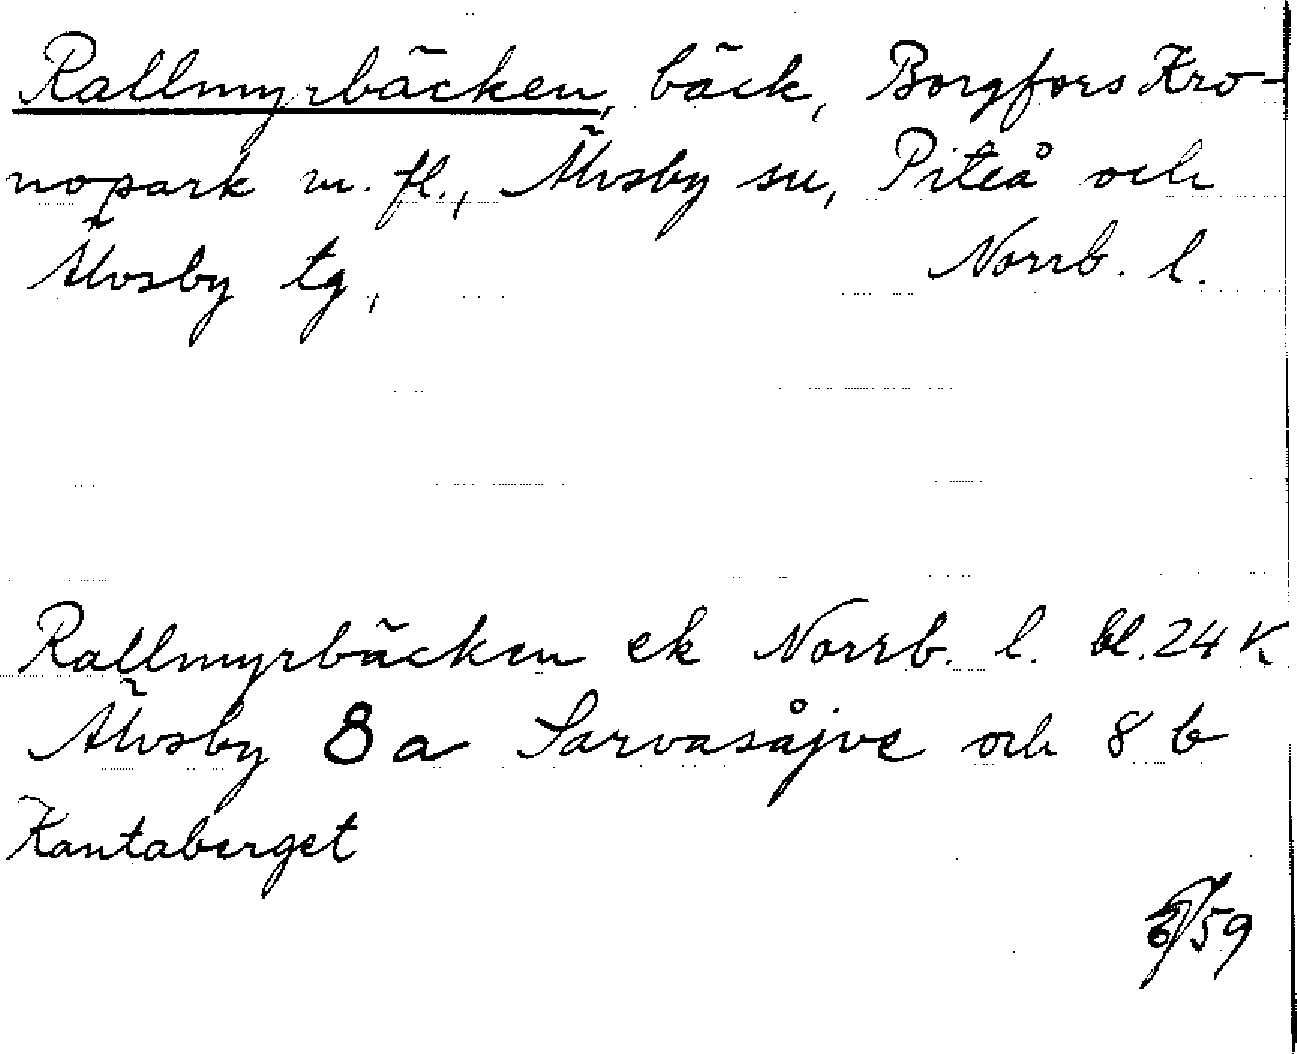 Rallmyrbäcken, bäck, Borgfors Kro-
nopark m. fl., Älvsby sn, Piteå och
Älvsby tg, Norrb. l.
Rallmyrbäcken ek Norrb. l. bl. 24 K
Älvsby 8 a Sarvasåjve och 8 b
Kantaberget
/59